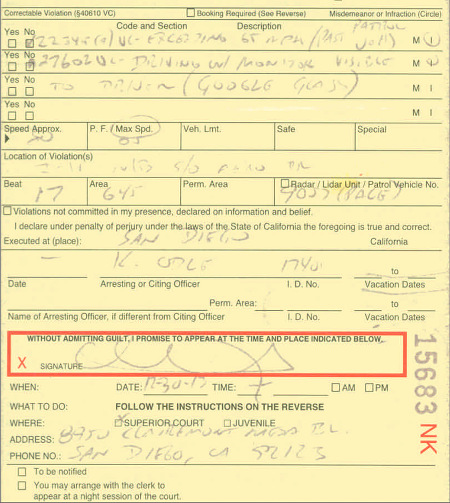 Correctable Violation (§40610 VC) Booking Required (See Reverse) Misdemeanor or Infraction (Circle)
Yes No Code and Section Description
22349(a) VC - 65 MPH M I
Yes No
27602 VC - DRIVING W/ MONITOR VISIBLE M I
Yes No
TO DRIVER (GOOGLE GLASS) M I
Yes No
M I
Speed Approx. P. F. / Max Spd. Veh. Lmt. Safe Special
65
Location of Violation(s)
Beat Area Perm. Area Radar / Lidar Unit / Patrol Vehicle No.
17 645 (PACE)
Violations not committed in my presence, declared on information and belief.
I declare under penalty of perjury under the laws of the State of California the foregoing is true and correct.
Executed at (place): SAN DIEGO California
K. to
Date Arresting or Citing Officer I. D. No. Vacation Dates
Perm. Area: to
Name of Arresting Officer, if different from Citing Officer I. D. No. Vacation Dates
WITHOUT ADMITTING GUILT, I PROMISE TO APPEAR AT THE TIME AND PLACE INDICATED BELOW.
X SIGNATURE
WHEN: DATE: TIME: AM PM
WHAT TO DO: FOLLOW THE INSTRUCTIONS ON THE REVERSE
WHERE: SUPERIOR COURT JUVENILE
ADDRESS: 8950 CLAIREMONT MESA BL.
PHONE NO.: SAN DIEGO, CA 92123
To be notified
You may arrange with the clerk to
appear at a night session of the court.
15683 NK